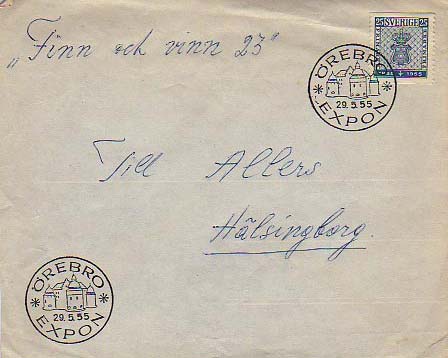 „Finn och vinn 23"
25 SVERIGE 25
1855 1955
* ÖREBRO *
29.5.55
EXPON
Till Allers
Hälsingborg.
* ÖREBRO *
29.5.55
EXPON